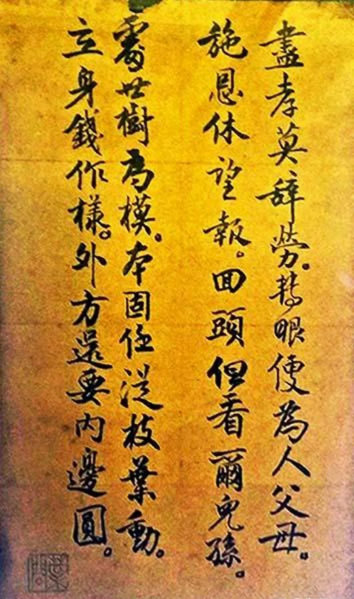 盡孝莫辞勞。轉眼便為人父母。
施恩休望報。回頭但看爾兒孫。
處世樹為模。本固任從枝葉動。
立身錢作樣。外方還要内邊圓。